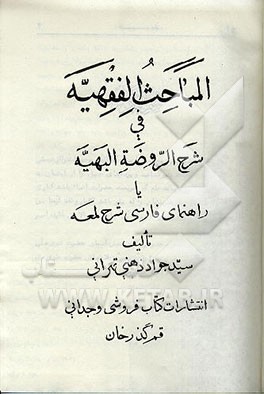 المَبٰاحِثُ الفِقْهِيَّه
فِي
شَرحِ الرَّوضَةِ البَهِيَّه
يا
راهنماى فارسى شرح لمعه
تأليف
سيّد جواد ذهنى تهرانى
انتشارات كتاب فروشى وجدانى
قم گذرخان
WWW.KETAB.IR